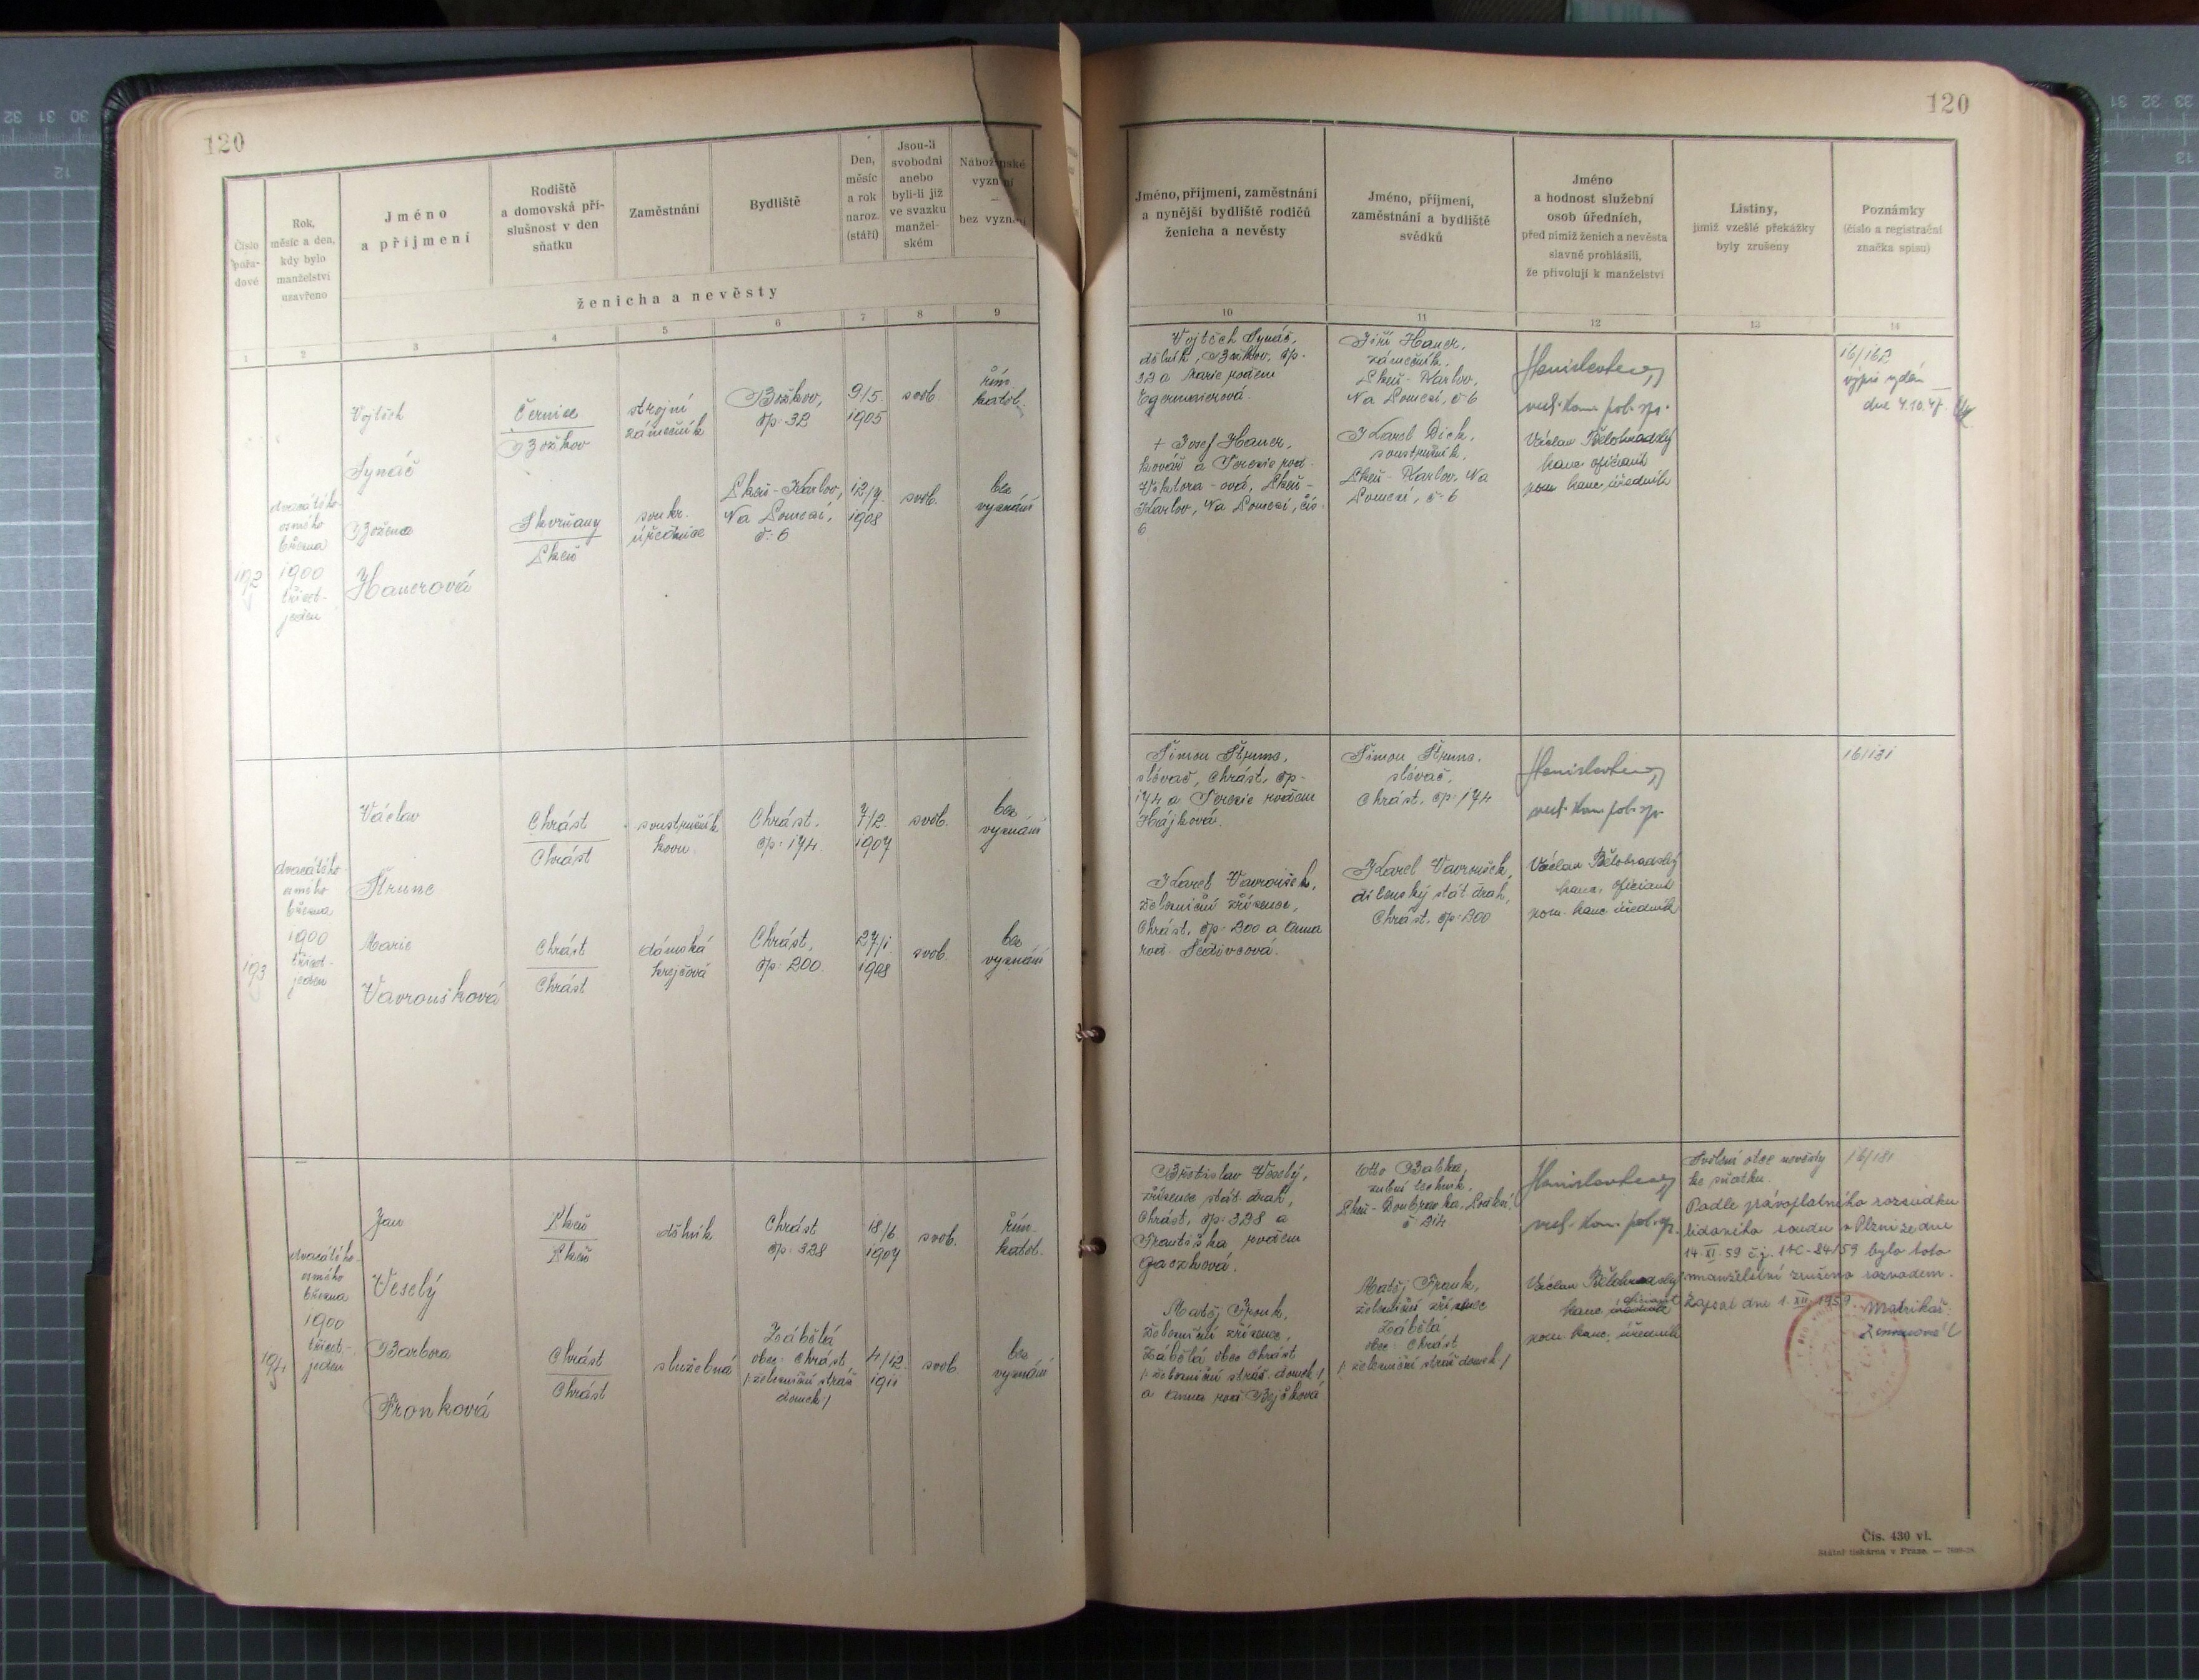 120
Číslo
pořa-
dové
Rok,
měsíc a den,
kdy bylo
manželství
uzavřeno
Jméno
a příjmení
Rodiště
a domovská pří-
slušnost v den
sňatku
Zaměstnání
Bydliště
Den,
měsíc
a rok
naroz.
(stáří)
Jsou-li
svobodni
anebo
byli-li již
ve svazku
manžel-
ském
vyznání
bez vyznání
ženicha a nevěsty
1
2
3
4
5
6
7
8
9
192
dvacátého
osmého
března
1900
třicet-
jeden
Vojtěch
Synáč
Božena
Hauerová
Černice
Božkov
Skvrňany
Plzeň
strojní
zámečník
soukr.
úřednice
Božkov,
čp. 32
Plzeň-Karlov,
Na Lomezí,
č. 6
9/5.
1905
12/7.
1908
svob.
svob.
řím.
katol.
bez
vyznání
193
dvacátého
osmého
března
1900
třicet-
jeden
Václav
Štrunc
Marie
Vavroušková
Chrást
Chrást
Chrást
Chrást
soustružník
kovu
dámská
krejčová
Chrást,
čp. 174.
Chrást,
čp. 200.
7/2.
1907
27/1
1908
svob.
svob.
bez
vyznání
bez
vyznání
194
dvacátého
osmého
března
1900
třicet-
jeden
Jan
Veselý
Barbora
Fronková
Plzeň
Plzeň
Chrást
Chrást
dělník
služebná
Chrást
čp. 328
Zábělá
obec Chrást
/: železniční stráž.
domek /
18/6.
1907
4/12.
1911
svob.
svob.
řím.
katol.
bez
vyznání
120
Jméno, příjmení, zaměstnání
a nynější bydliště rodičů
ženicha a nevěsty
Jméno, příjmení,
zaměstnání a bydliště
svědků
Jméno
a hodnost služební
osob úředních,
před nimiž ženich a nevěsta
slavně prohlásili,
že přivolují k manželství
Listiny,
jimiž vzešlé překážky
byly zrušeny
Poznámky
(číslo a registrační
značka spisu)
10
11
12
13
14
Vojtěch Synáč,
dělník, Božkov, čp.
32 a Marie rodem
Egermaierová.
+ Josef Hauer,
kovář a Terezie rod.
Viktora-ová, Plzeň-
Karlov, Na Lomezí, čís.
6
Jiří Hauer,
zámečník,
Plzeň-Karlov,
Na Lomezí, č. 6
Karel Dick,
soustružník,
Plzeň-Karlov, Na
Lomezí, č. 6
Václav Bělohradský
kanc. oficiant
pom. kanc. úředník
výpis vydán
dne 4.10.47.
Šimon Štrunc,
slévač, Chrást, čp.
174 a Terezie rodem
Hájková.
Karel Vavroušek,
železniční zřízenec,
Chrást, čp. 200 a Anna
rod. Šedivcová.
Šimon Štrunc,
slévač,
Chrást, čp. 174
Karel Vavroušek,
dílenský stát. drah,
Chrást, čp. 200
Václav Bělohradský
kanc. oficiant
pom. kanc. úředník
16/131
Břetislav Veselý,
zřízenec stát. drah,
Chrást, čp. 328 a
Františka, rodem
Matěj Fronk,
železniční zřízenec,
Zábělá obec Chrást
/: železniční stráž. domek /
a Anna rod. Bejčková
Otto Babka,
zubní technik,
č. 214
Matěj Fronk,
železniční zřízenec
Zábělá
obec Chrást
/: železniční stráž. domek /
Václav Bělohradský
kanc. oficiant
pom. kanc. úředník
Svolení otce nevěsty
ke sňatku.
16/181
Podle právoplatného rozsudku
lidového soudu v Plzni ze dne
14. XI. 59 č.j. 14C-84/59 bylo toto
manželství zrušeno rozvodem.
Zapsal dne 1. XII. 1959. Matrikář:
Čís. 430 vl.
Státní tiskárna v Praze.